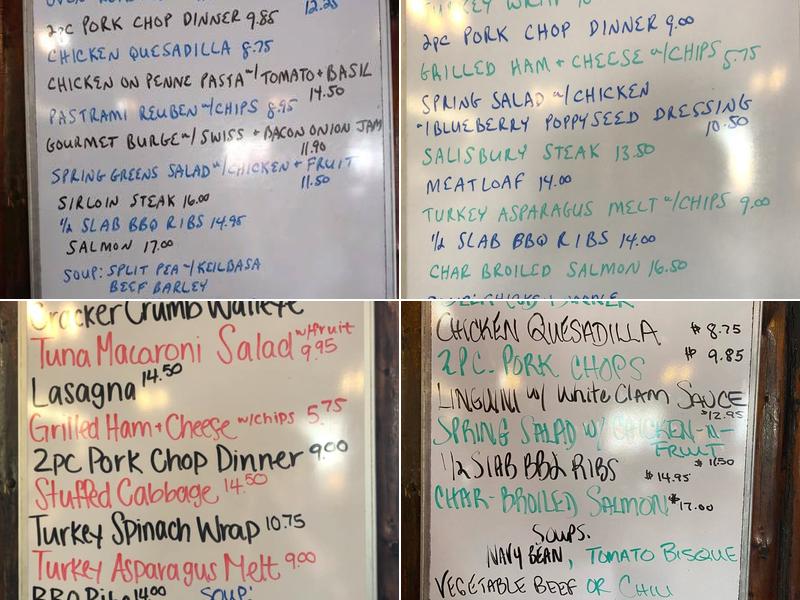 12.25
2PC PORK CHOP DINNER 9.85
CHICKEN QUESADILLA 8.75
CHICKEN ON PENNE PASTA W/TOMATO + BASIL
14.50
PASTRAMI REUBEN W/CHIPS 8.95
GOURMET BURGE W/SWISS + BACON ONION JAM
11.90
SPRING GREENS SALAD W/CHICKEN + FRUIT
11.50
SIRLOIN STEAK 16.00
½ SLAB BBQ RIBS 14.95
SALMON 17.00
SOUP: SPLIT PEA W/KEILBASA
BEEF BARLEY
TURKEY WRAP
2PC PORK CHOP DINNER 9.00
GRILLED HAM + CHEESE W/CHIPS 5.75
SPRING SALAD W/CHICKEN
W/BLUEBERRY POPPYSEED DRESSING
10.50
SALISBURY STEAK 13.50
MEATLOAF 14.00
TURKEY ASPARAGUS MELT W/CHIPS 9.00
½ SLAB BBQ RIBS 14.00
CHAR BROILED SALMON 16.50
Cracker Crumb Walleye
Tuna Macaroni Salad w/fruit
9.95
Lasagna 14.50
Grilled Ham + Cheese w/chips 5.75
2pc Pork Chop Dinner 9.00
Stuffed Cabbage 14.50
Turkey Spinach Wrap 10.75
Turkey Asparagus Melt 9.00
BBQ Ribs 14.00 Soup:
CHICKEN QUESADILLA $8.75
2PC. PORK CHOPS $9.85
LINGUINI W/ White Clam SAUCE
$12.95
SPRING SALAD W/ CHICKEN-N-
FRUIT
$11.50
½ SLAB BBQ RIBS $14.95
CHAR-BROILED SALMON $17.00
SOUPS.
NAVY BEAN, TOMATO BISQUE
VEGETABLE BEEF OR CHILI